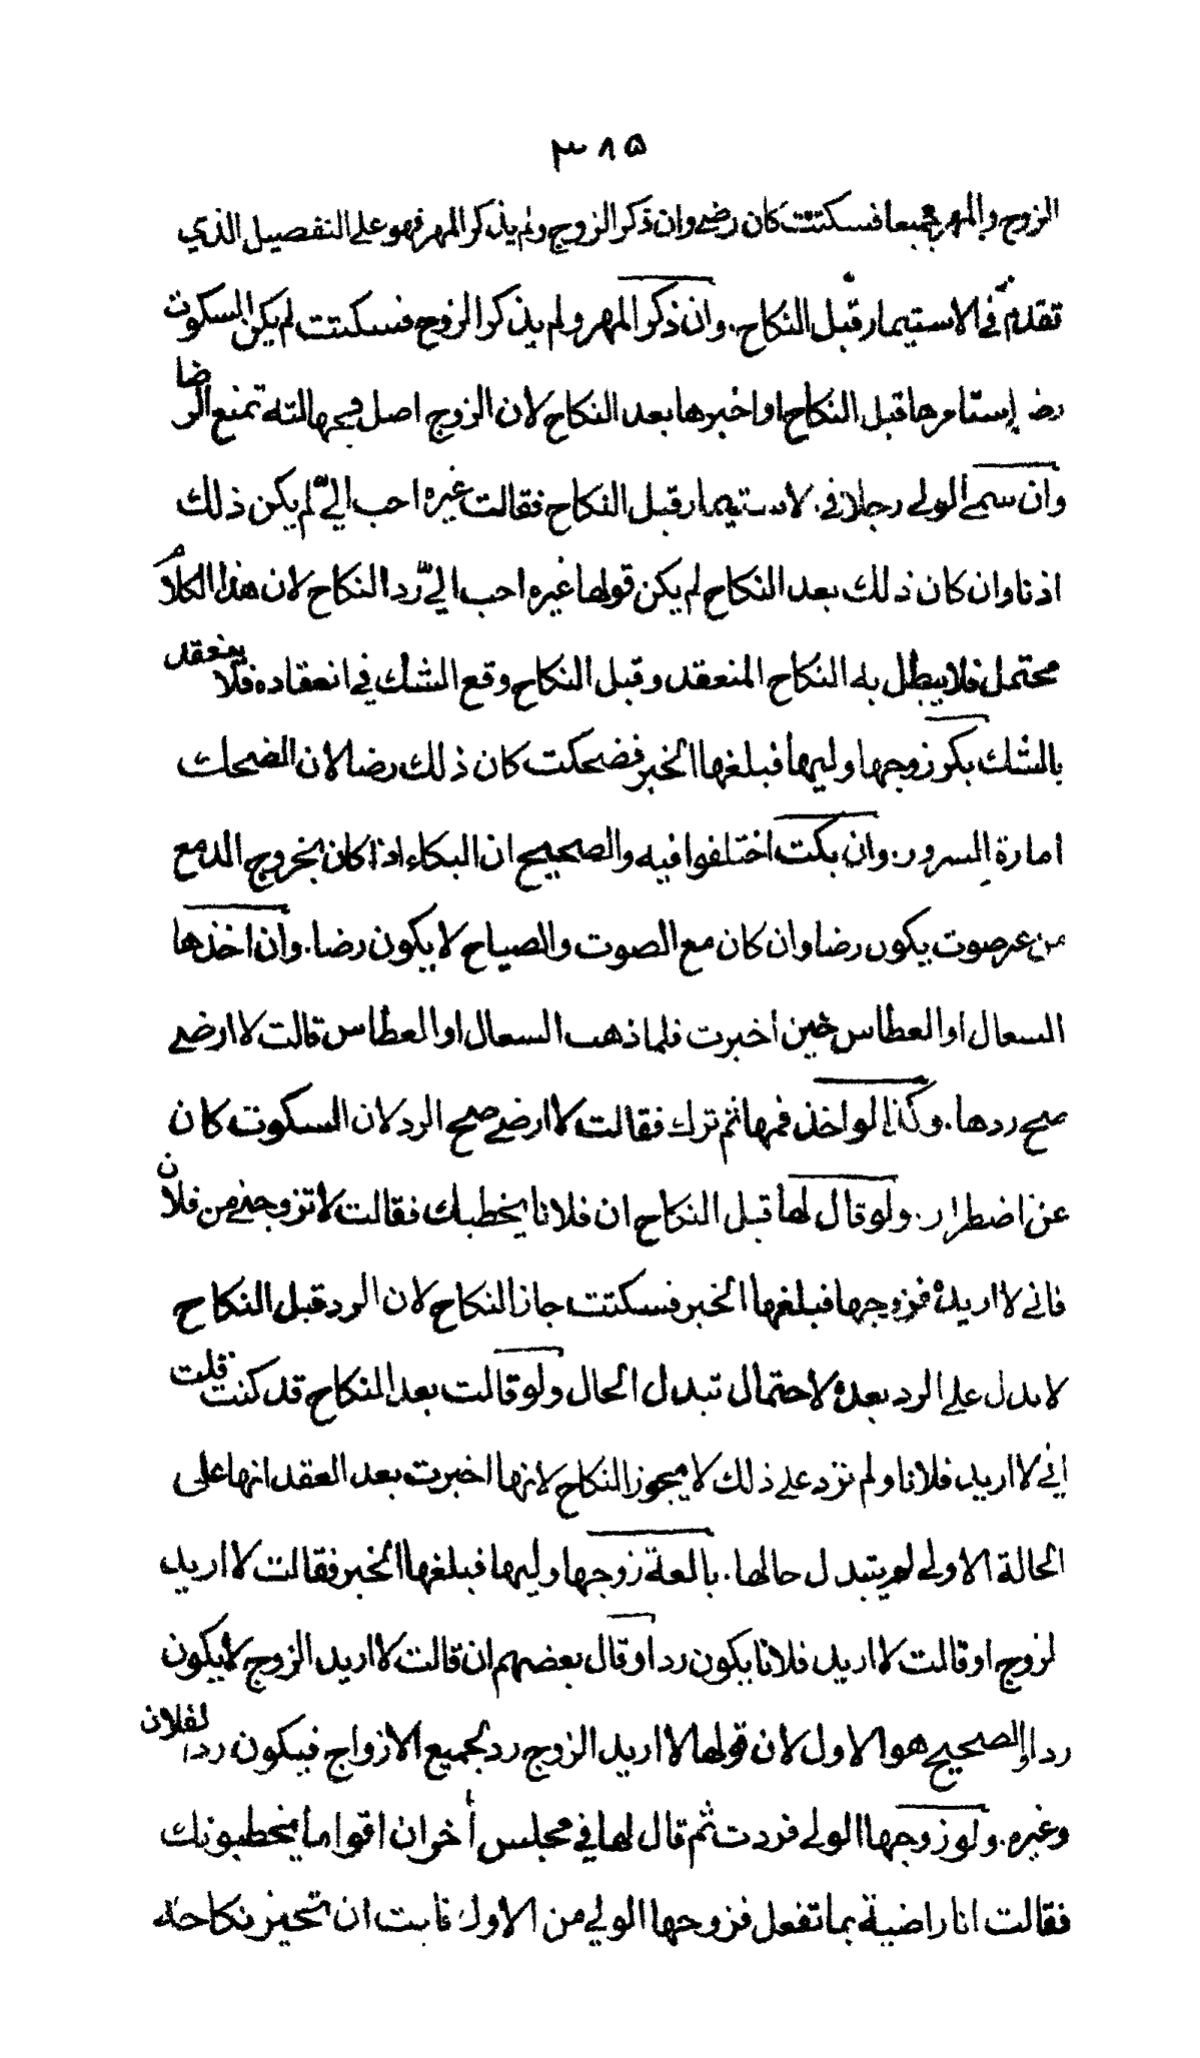 ٣٨٥
الزوج والمهر جميعا فسكتت كان رضى وان ذكر الزوج ولم يذكر المهر فهو على التفصيل الذي
تقدم في الاستيمار قبل النكاح. وان ذكر المهر ولم يذكر الزوج فسكتت لم يكن السكوت
رضا إستامرها قبل النكاح او اخبرها بعد النكاح لان الزوج اصل فجهالته تمنع الرضا
وان سمى الولي رجلا في الاستيمار قبل النكاح فقالت غيره احب اليّ لم يكن ذلك
اذنا وان كان ذلك بعد النكاح لم يكن قولها غيره احب اليّ رد النكاح لان هذا الكلام
محتمل فلا يبطل به النكاح المنعقد وقبل النكاح وقع الشك في انعقاده فلا ينعقد
بالشك بكر زوجها وليها فبلغها الخبر فضحكت كان ذلك رضا لان الضحك
امارة السرور. وان بكت اختلفوا فيه والصحيح ان البكاء اذا كان بخروج الدمع
من غير صوت يكون رضا وان كان مع الصوت والصياح لا يكون رضا. وان اخذها
السعال او العطاس حين اخبرت فلما ذهب السعال او العطاس قالت لا ارضى
صح ردها. وكذا لو اخذ فمها ثم ترك فقالت لا ارضى صح الرد لان السكوت كان
عن اضطرار. ولو قال لها قبل النكاح ان فلانا يخطبك فقالت لا تزوجني من فلان
فاني لا اريده فزوجها فبلغها الخبر فسكتت جاز النكاح لان الرد قبل النكاح
لا يدل على الرد بعده لاحتمال تبدل الحال ولو قالت بعد النكاح قد كنت قلت
اني لا اريد فلانا ولم تزد على ذلك لا يجوز النكاح لانها اخبرت بعد العقد انها على
الحالة الاولى لم يتبدل حالها. بالغة زوجها وليها فبلغها الخبر فقالت لا اريد
لزوج او قالت لا اريد فلانا يكون ردا وقال بعضهم ان قالت لا اريد الزوج لا يكون
ردا والصحيح هو الاول لان قولها لا اريد الزوج رد لجميع الازواج فيكون ردا لفلان
وغيره. ولو زوجها الولي فردت ثم قال لها في مجلس أخر ان اقواما يخطبونك
فقالت انا راضية بما تفعل فزوجها الولي من الاول فابت ان تجيز نكاحه